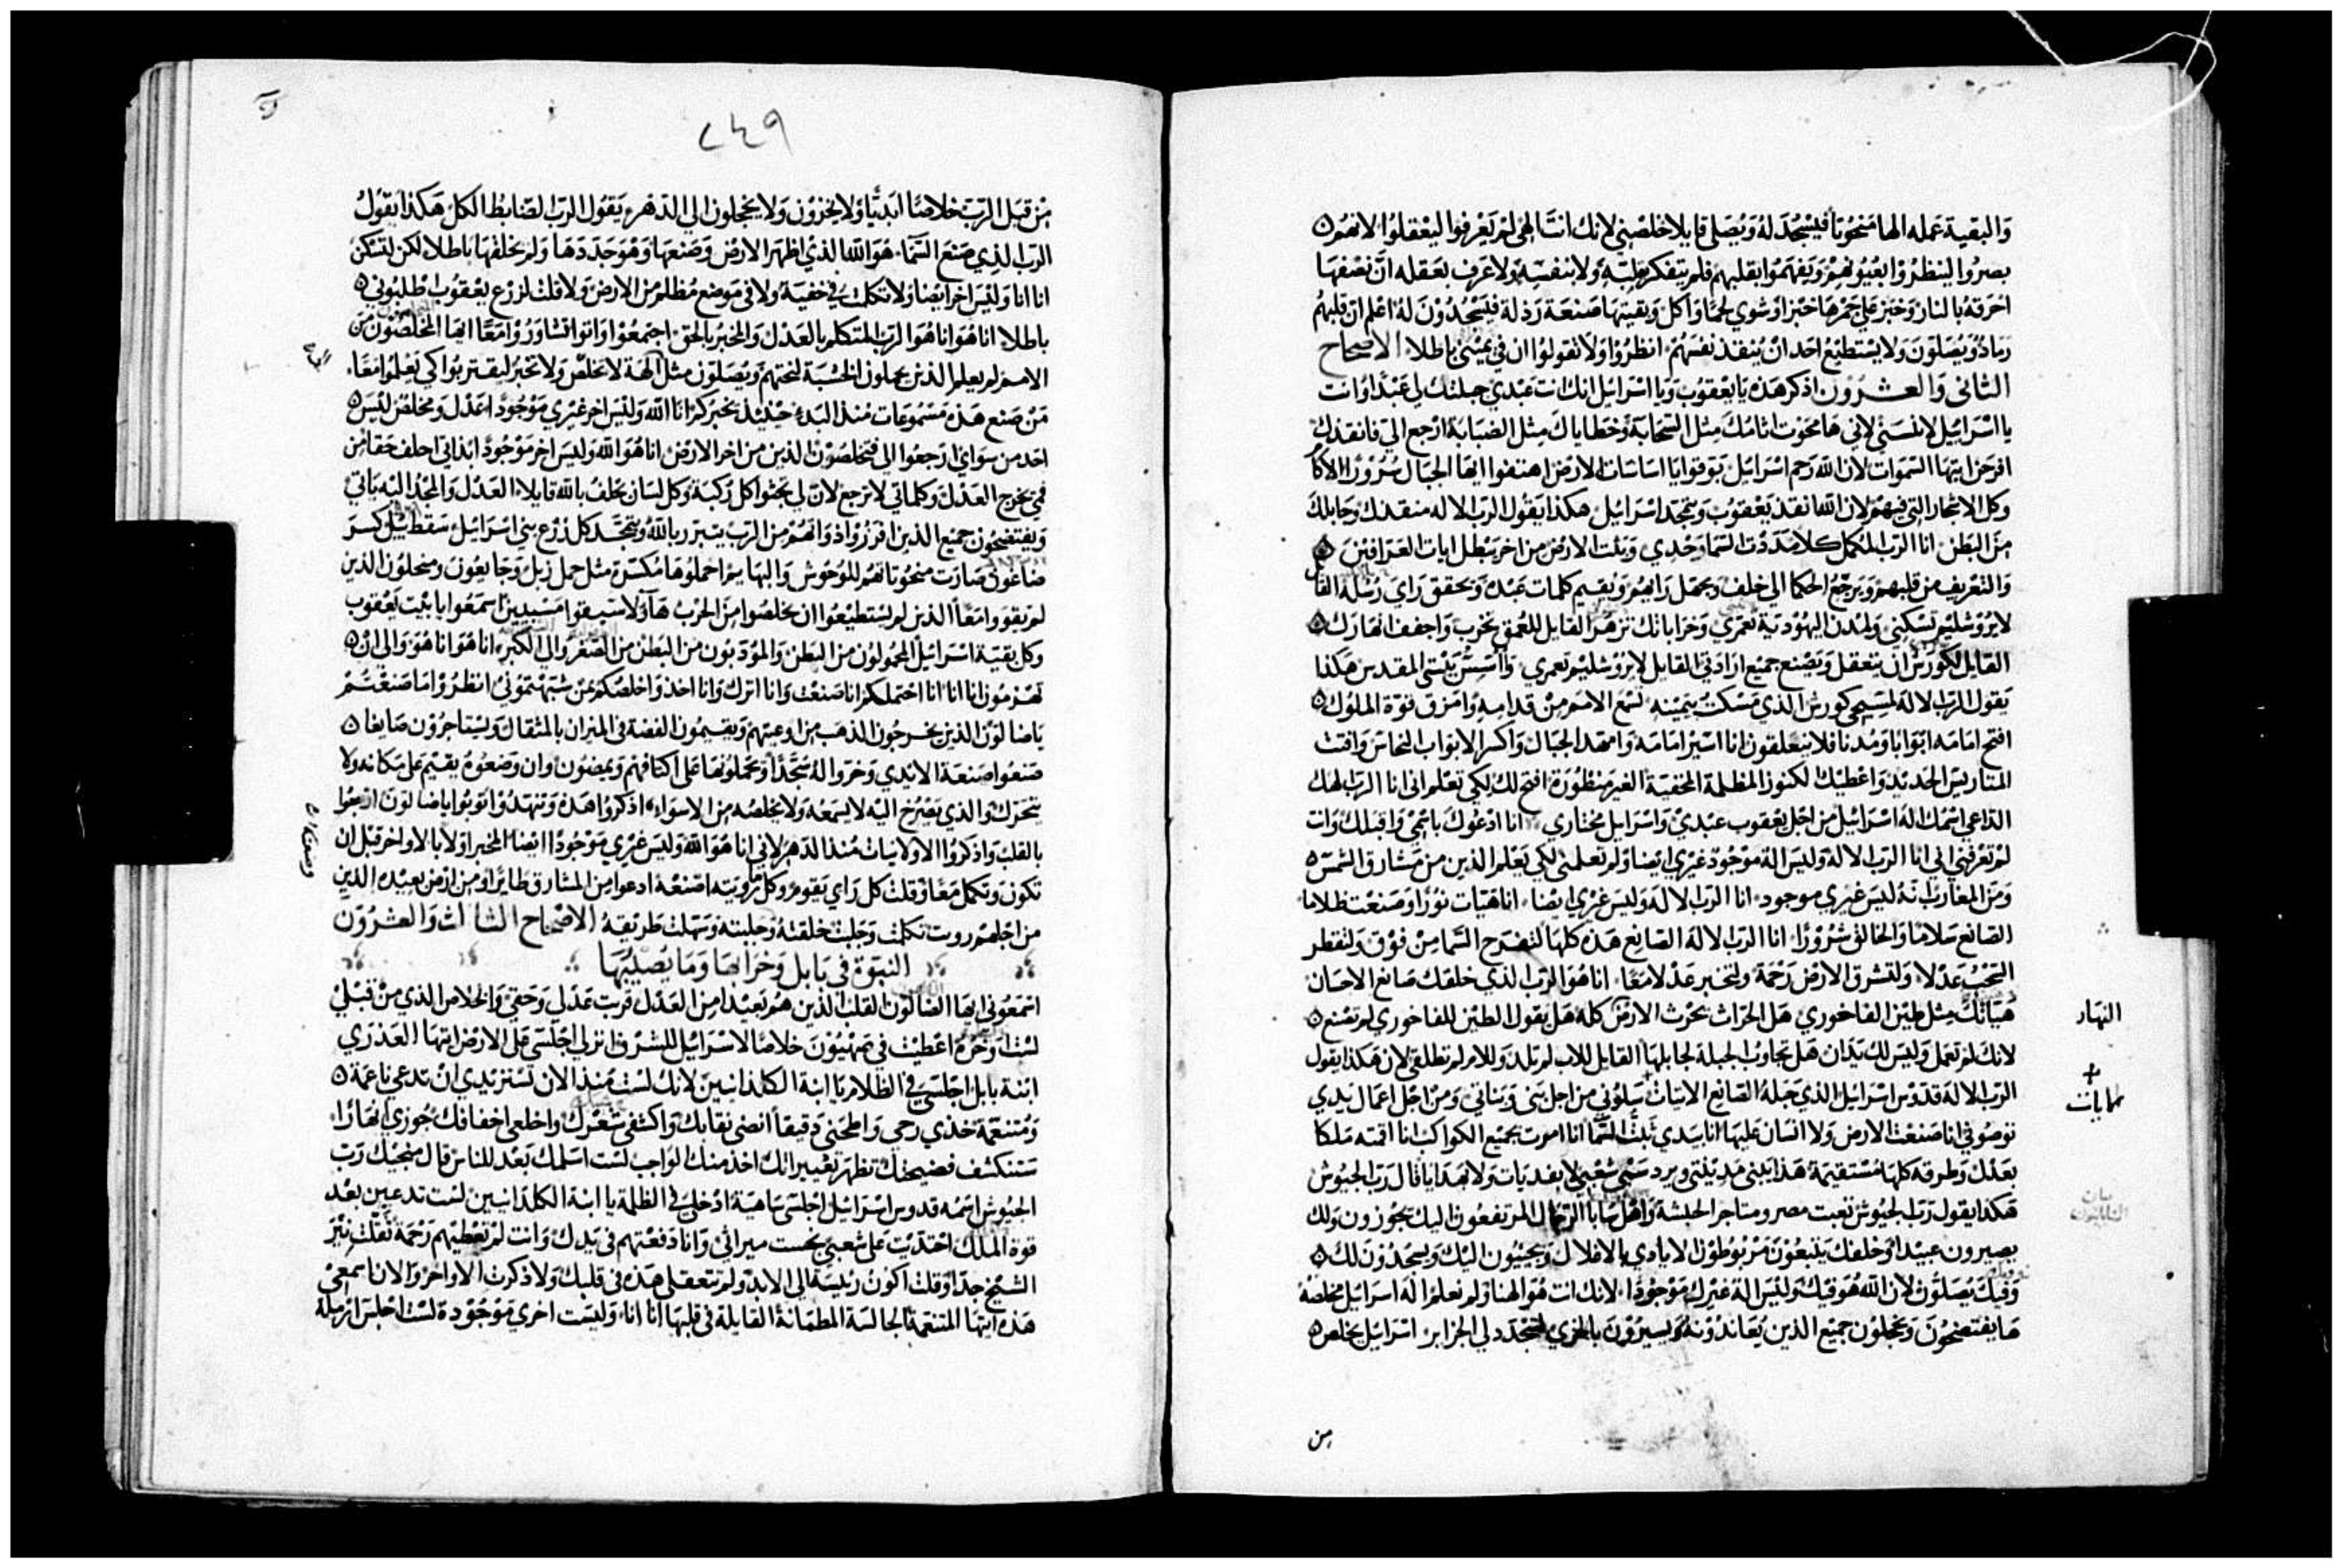 والبقية عمله الها منحوتا فيسجد له ويصلي قايلا خلصني لانك انت الهي لم يعرفوا ليعقلوا لانهم
بصروا لينظروا بعيونهم ويفهموا بقلبهم فلم يتفكر بقلبه ولا بنفسه ولا عرف بعقله ان نصفها
احرقه بالنار وخبز علي جمرها خبزا وشوي لحما واكل وبقيتها صنعة رذلة فيسجدون له اعلم ان قلبهم
رماد ويصلون ولا يستطيع احد ان ينقذ نفسهم انظروا ولا تقولوا ان في يميني باطلا الاصحاح
الثاني والعشرون اذكر هذه يا يعقوب ويا اسرائيل انك انت عبدي جبلتك لي عبدا وانت
يا اسرائيل لا تنسني لاني ها محوت اثامك مثل السحابة وخطاياك مثل الضبابة ارجع الي فانقذك
افرحن ايتها السموات لان الله رحم اسرائيل بوقوا يا اساسات الارض اهتفوا ايها الجبال سرورا الاكام
وكل الاشجار التي فيهم لان الله انقذ يعقوب ويتمجد اسرائيل هكذا يقول الرب الاله منقذك وجابلك
من البطن انا الرب المكمل كلا مددت السما وحدي وثبت الارض من اخر يبطل ايات العرافين
والتعريف من قلبهم ويرجع الحكما الي خلف ويجهل رايهم ويقيم كلمات عبده ويحقق راي رسله القايل
لايروشليم تسكني ولمدن اليهودية تعمري وخراباتك تزهر القايل للعمق تخرب واجفف انهارك
القايل لكورش ان يتعقل ويصنع جميع ارادتي القايل لايروشليم تعمري واسس بيتي المقدس هكذا
يقول الرب الاله لمسيحي كورش الذي مسكت بيمينه لتسمع الامم من قدامه وامزق قوة الملوك
افتح امامه ابوابا ومدنا فلا يتغلقون انا اسير امامه وامهد الجبال واكسر الابواب النحاس وافتت
المتاريس الحديد واعطيك الكنوز المظلمة المخفية الغير منظورة افتح لك لكي تعلم اني انا الرب الهك
الداعي اسمك اله اسرائيل من اجل يعقوب عبدي واسرائيل مختاري انا ادعوك باسمي واقبلك وانت
لم تعرفني اني انا الرب الاله وليس اله موجود غيري ايضا ولم تعلمني لكي يعلم الذين من مشارق الشمس
ومن المغارب انه ليس غيري موجود انا الرب الاله وليس غيري ايضا انا هيات نورا وصنعت ظلاما
الصانع سلاما والخالق شرورا انا الرب الاله الصانع هذه كلها لتفرح السما من فوق ولتقطر
السحب عدلا ولتشرق الارض رحمة ولتخبر عدلا معا انا هو الرب الذي خلقك صانع الاحسان
هياتك مثل طين الفاخوري هل الحراث يحرث الارض كله هل يقول الطين للفاخوري لم تصنع
لانك لم تعمل وليس لك يدان هل تجاوب الجبلة لجابلها القايل للاب لم تلد وللام لم تطلقي لان هكذا يقول
الرب الاله قدوس اسرائيل الذي جبله الصانع الاتيات سلوني من اجل بني وبناتي ومن اجل اعمال يدي
توصوني انا صنعت الارض ولا انسان عليها انا بيدي ثبت السما انا امرت جميع الكواكب انا اقمته ملكا
بعدل وطرقه كلها مستقيمة هذا يبني مدينتي ويرد سبي شعبي لا بفديات ولا بهدايا قال رب الجيوش
هكذا يقول رب الجيوش تعبت مصر ومتاجر الحبشة واهل سابا الرجال المرتفعون اليك يجوزون ولك
يصيرون عبيدا وخلفك يتبعون مربوطون الايادي بالاغلال ويجيئون اليك ويسجدون لك
وفيك يصلون لان الله هو فيك وليس اله غيرك موجودا لانك انت هو الهنا ولم نعلم اله اسرائيل مخلصه
ها يفتضحون ويخجلون جميع الذين يعاندونه ويسيرون بالخزي لتتجدد لي الجزاير اسرائيل يخلص
من
النهار
٢٤٩
من قبل الرب خلاصا ابديا ولا يخزون ولا يخجلون الي الدهر يقول الرب الضابط الكل هكذا يقول
الرب الذي صنع السما هو الله الذي اظهر الارض وصنعها وهو جددها ولم يخلقها باطلا لكن لتسكن
انا انا وليس اخر ايضا ولا تكلمت في خفية ولا في موضع مظلم من الارض ولا قلت لزرع يعقوب اطلبوني
باطلا انا هو انا هو الرب المتكلم بالعدل والمخبر بالحق اجتمعوا واتوا تشاوروا معا ايها المخلصون من
الامم لم يعلم الذين يحملون الخشبة لنحتهم ويصلون مثل الهة لا تخلص ولا تخبر ليقتربوا كي يعلموا معا
من صنع هذه مسموعات منذ البدء حينيذ يخبركم انا الله وليس اخر غيري موجودا عدل ومخلص ليس
احد من سواي ارجعوا الي فتخلصون الذين من اخر الارض انا هو الله وليس اخر موجودا بذاتي احلف حقا من
فمي يخرج العدل وكلماتي لا ترجع لان لي يجثوا كل ركبة وكل لسان يحلف بالله قايلا العدل والمجد اليه ياتي
ويفتضحون جميع الذين افرزوا ذواتهم من الرب يتبرر بالله ويتمجد كل زرع بني اسرائيل سقط بيل كسر
ضاغون صارت منحوتاتهم للوحوش والبهايم احملوها مكسرة مثل حمل زبل وجايعون ومنحلون الذين
لم يقووا معا الذين لم يستطيعوا ان يخلصوا من الحرب هاولا سيقوا مسبيين اسمعوا يا بيت يعقوب
وكل بقية اسرائيل المحمولون من البطن والمودبون من البطن من الصغر والي الكبر انا هو انا هو والي ان
تهرموا انا انا انا احتملكم انا صنعت وانا اترك وانا اخذ واخلصكم بمن شبهتموني انظروا ما صنعتم
يا ضالون الذين يخرجون الذهب من اوعيتهم ويقيمون الفضة في الميزان بالمثقال ويستاجرون صايغا
صنعوا صنعة الايدي وخروا له سجدا ويحملونها علي اكتافهم ويمضون وان وضعوه يقيم علي مكانه ولا
يتحرك والذي يصرخ اليه لا يسمعه ولا يخلصه من الاسواء اذكروا هذه وتنهدوا توبوا يا ضالون ارجعوا
بالقلب واذكروا الاولايات منذ الدهر لاني انا هو الله وليس غيري موجودا ايضا المخبر اولا بالاواخر قبل ان
تكون وتكمل معا وقلت كل راي يقوم وكل ما رويته اصنعه ادعوا من المشارق طايرا ومن ارض بعيدة الذين
من اجلهم رويت تكلمت وجلبت خلقته وجلبته وسهلت طريقه الاصحاح الثالث والعشرون
النبوة في بابل وخرابها وما يصيبها
اسمعوني ايها الضالون القلب الذين هم بعيدا من العدل قربت عدلي وحقي والخلاص الذي من قبلي
لست اوخره اعطيت في صهيون خلاصا لاسرائيل للشرف انزلي اجلسي علي الارض ايتها العذري
ابنة بابل اجلسي في الظلام يا ابنة الكلدانيين لانك لست منذ الان تستزيدي ان تدعي ناعمة
ومتنعمة خذي رحي واطحني دقيقا انضي نقابك واكشفي شعرك واخلعي اخفافك جوزي انهارا
ستنكشف فضيحتك تظهر تعييراتك اخذ منك الواجب لست اسلمك بعد للناس قال منجيك رب
الجيوش اسمه قدوس اسرائيل اجلسي ساهية ادخلي في الظلمة يا ابنة الكلدانيين لست تدعين بعد
قوة الملك احتديت علي شعبي نجست ميراثي وانا دفعتهم في يدك وانت لم تعطيهم رحمة ثقلت نير
الشيخ جدا وقلت اكون رئيسة الي الابد ولم تتعقلي هذه في قلبك ولا ذكرت الاواخر والان اسمعي
هذه ايتها المتنعمة الجالسة المطمانة القايلة في قلبها انا انا وليست اخري موجودة لست اجلس ارملة